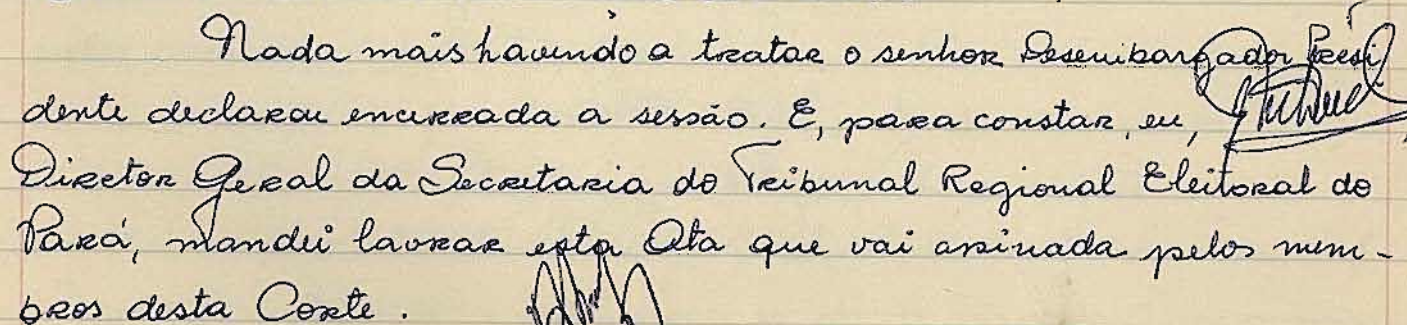 Nada mais havendo a tratar o senhor Desembargador Presi
dente declarou encerrada a sessão. E, para constar, eu,
Director Geral da Secretaria do Tribunal Regional Eleitoral do
Pará, mandei lavrar esta Ata que vai assinada pelos mem-
bros desta Corte.